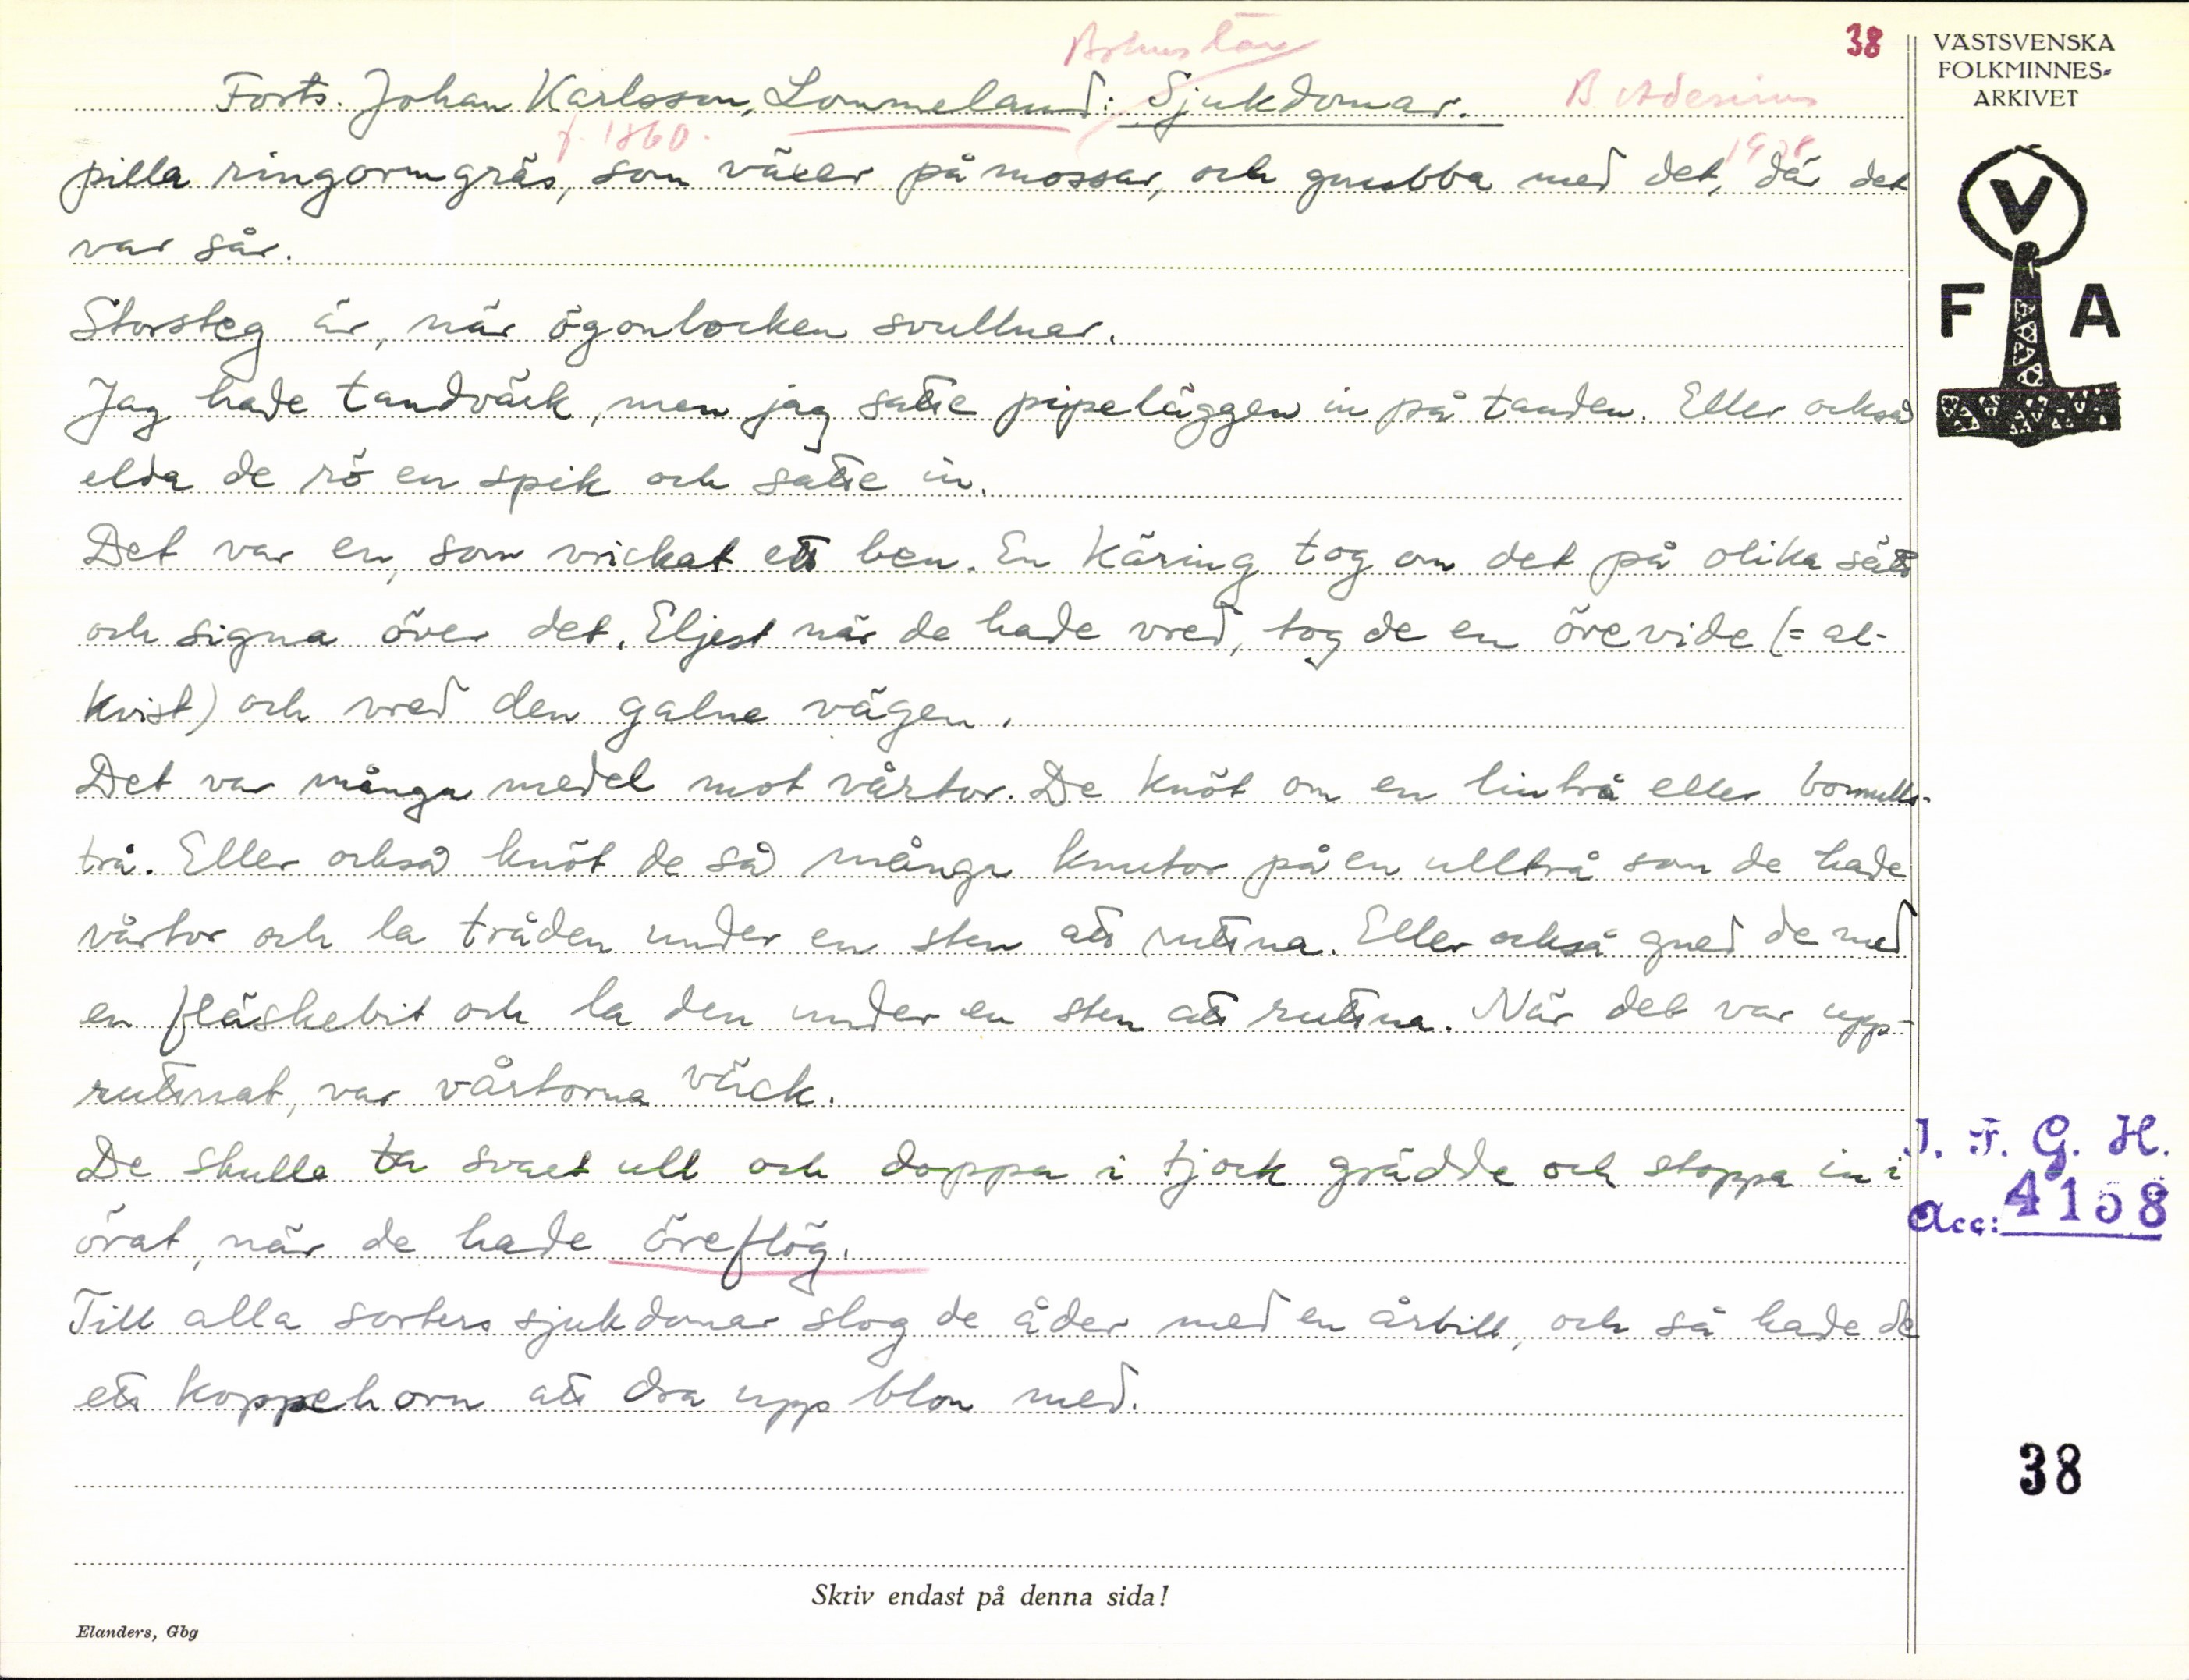 38
VÄSTSVENSKA
FOLKMINNES-
ARKIVET
Forts. Johan Karlsson, Lommeland: Sjukdomar.
f. 1860.
1928
pilla ringormgräs, som växer på mossar, och gnubba med det, där det
var sår.
Storsteg är, när ögonlocken svullnar.
Jag hade tandvärk, men jag satte pipeläggen in på tanden. Eller också
elda de rö en spik och satte in.
Det var en, som vrickat ett ben. En käring tog om det på olika sätt
och signa över det. Eljest när de hade vred, tog de en örevide (= al-
kvist) och vred den galne vägen.
Det var många medel mot vårtor. De knöt om en lintrå eller bomulls-
trå. Eller också knöt de så många knutor på en ulltrå som de hade
vårtor och la tråden under en sten att ruttna. Eller också gned de med
en fläskebit och la den under en sten att ruttna. När det var upp-
ruttnat, var vårtorna väck.
De skulle ta svart ull och doppa i tjock grädde och stoppa in i
örat, när de hade öreflög.
Till alla sorters sjukdomar slog de åder med en årbill, och så hade de
ett koppehorn att dra upp blon med.
V
F A
I. F. G. H.
Acc: 4158
38
Skriv endast på denna sida!
Elanders, Gbg